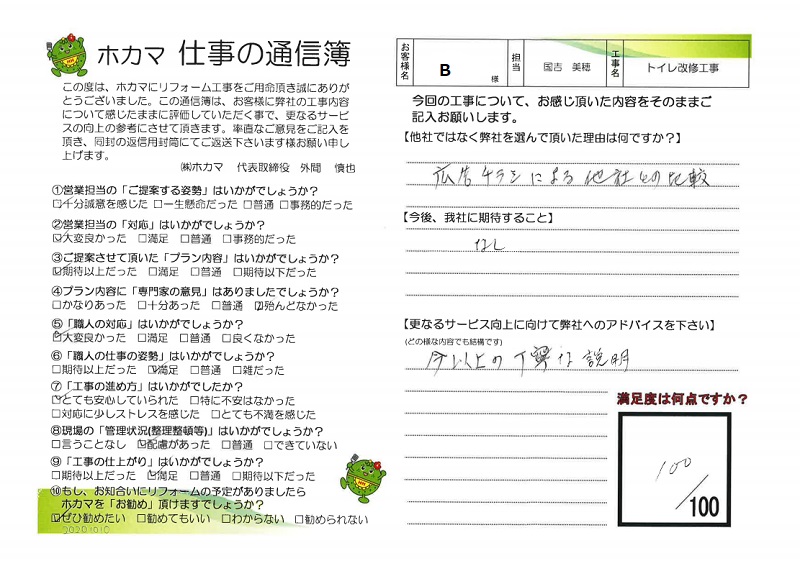 ホカマ 仕事の通信簿
この度は、ホカマにリフォーム工事をご用命頂き誠にありが
とうございました。この通信簿は、お客様に弊社の工事内容
について感じたままに評価していただく事で、更なるサービ
スの向上の参考にさせて頂きます。率直なご意見をご記入を
頂き、同封の返信用封筒にてご返送下さいます様お願い申し
上げます。
㈱ホカマ 代表取締役 外間 慎也
①営業担当の「ご提案する姿勢」はいかがでしょうか?
☑十分誠意を感じた □一生懸命だった □普通 □事務的だった
②営業担当の「対応」はいかがでしょうか?
☑大変良かった □満足 □普通 □事務的だった
③ご提案させて頂いた「プラン内容」はいかがでしょうか?
☑期待以上だった □満足 □普通 □期待以下だった
④プラン内容に「専門家の意見」はありましたでしょうか?
□かなりあった □十分あった □普通 ☑殆んどなかった
⑤「職人の対応」はいかがでしょうか?
☑大変良かった □満足 □普通 □良くなかった
⑥「職人の仕事の姿勢」はいかがでしょうか?
□期待以上だった ☑満足 □普通 □雑だった
⑦「工事の進め方」はいかがでしたか?
☑とても安心していられた □特に不安はなかった
□対応に少しストレスを感じた □とても不満を感じた
⑧現場の「管理状況(整理整頓等)」はいかがでしょうか?
□言うことなし ☑配慮があった □普通 □できていない
⑨「工事の仕上がり」はいかがでしょうか?
□期待以上だった ☑満足 □普通 □期待以下だった
⑩もし、お知合いにリフォームの予定がありましたら
ホカマを「お勧め」頂けますでしょうか?
☑ぜひ勧めたい □勧めてもいい □わからない □勧められない
20201010
お客様名 B 様 担当 国吉 美穂 工事名 トイレ改修工事
今回の工事について、お感じ頂いた内容をそのままご
記入お願いします。
【他社ではなく弊社を選んで頂いた理由は何ですか?】
広告チラシによる他社との比較
【今後、我社に期待すること】
なし
【更なるサービス向上に向けて弊社へのアドバイスを下さい】
(どの様な内容でも結構です)
今以上の丁寧な説明
満足度は何点ですか?
100
/100